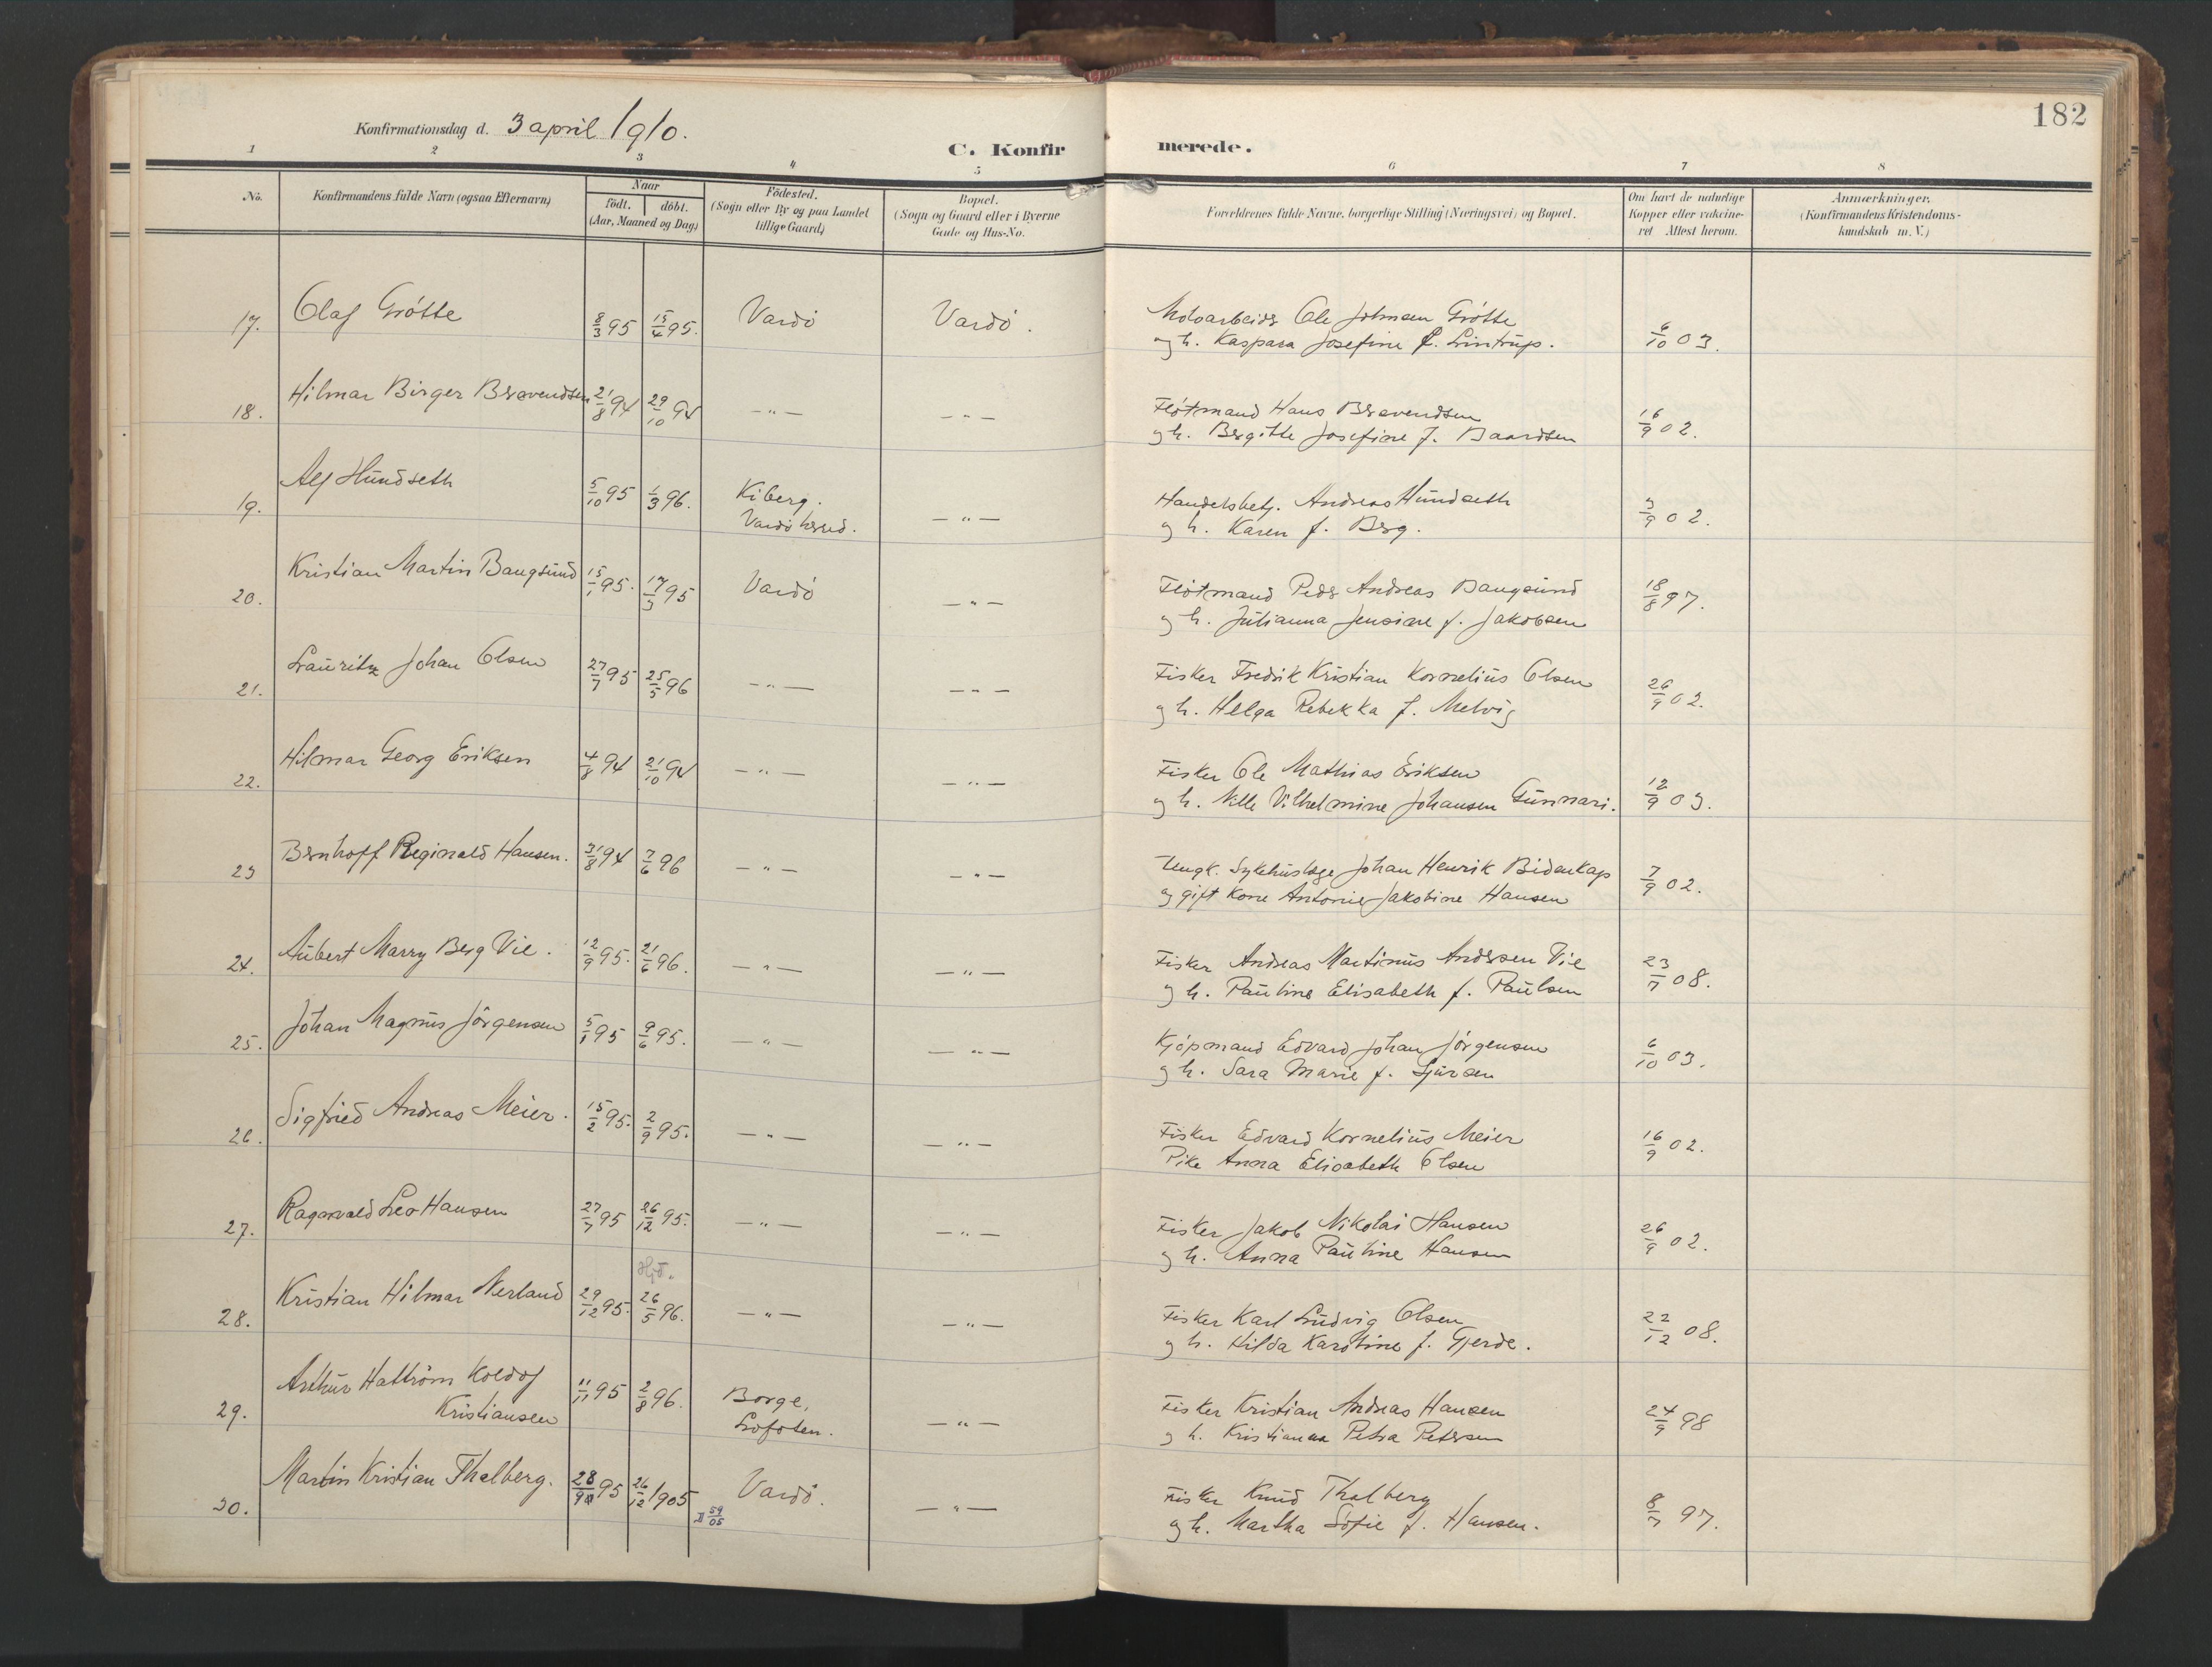 182
Konfirmationsdag d. 3 april 1910.
C. Konfirmerede.
1 2 3 4 5 6 7 8
No. Konfirmandens fulde Navn (ogsaa Efternavn) Naar födt. döbt. (Aar, Maaned og Dag) Födested. (Sogn eller By og paa Landet tillige Gaard) Bopæl. (Sogn og Gaard eller i Byerne Gade og Hus-No. Forældrenes fulde Navne, borgerlige Stilling (Næringsvei) og Bopæl. Om havt de naturlige Kopper eller vakcineret Attest herom. Anmærkninger. (Konfirmandens Kristendomskundskab m. V.)
17. Olaf Grötte 8/3 95 15/4 95. Vardö Vardö. Ole Johnsen Grötte 6/10 03.
og h. Kaspara Josefine f. Lintrup.
18. Hilmar Birger Berevendsen 21/8 94 29/10 94 -"- -"- Flötmand Hans Berevendsen 16/9 02.
og h. Bergitte Josefine f. Baardsen
19. Alf Hundseth 5/10 95 1/3 96. Kiberg. -"- Handelsbetj. Andreas Hundseth 3/9 02.
Vardö herred. og h. Karen f. Berg.
20. Kristian Martin Baugsund 15/1 95. 17/3 95 Vardö -"- Flötmand Peder Andreas Baugsund 18/8 97.
og h. Julianna Jensine f. Jakobsen
21. Lauritz Johan Olsen 27/7 95 25/5 96 -"- -"- Fisker Fredrik Kristian Kornelius Olsen 26/9 02.
og h. Helga Rebekka f. Melvig
22. Hilmar Georg Eriksen 4/8 94 21/10 94 -"- -"- Fisker Ole Mathias Eriksen 12/9 03.
og h. Nille Vilhelmine Johansen Gunnari.
23 Bernhoff Reginald Hansen. 31/8 94 7/6 96 -"- -"- Ungk. Sykehuslæge Johan Henrik Bidenkap 7/9 02.
og gift Kone Antonie Jakobine Hansen
24. Aubert Marry Berg Vie. 12/9 95. 21/6 96. -"- -"- Fisker Andreas Martinus Andersen Vie 23/7 08.
og h. Pauline Elisabeth f. Paulsen
25. Johan Magnus Jörgensen 5/1 95 9/6 95. -"- -"- Kjöpmand Edvard Johan Jörgensen 6/10 03.
og h. Sara Marie f. Sjursen
26. Sigfried Andreas Meier. 15/2 95. 2/9 95. -"- -"- Fisker Edvard Kornelius Meier 16/9 02.
Pike Anna Elisabeth Olsen
27. Ragnvald Leo Hansen 27/7 95 26/12 95. -"- -"- Fisker Jakob Nikolai Hansen 26/9 02.
og h. Anna Pauline Hansen
Hjd.
28. Kristian Hilmar Nerland 29/12 95. 26/5 96. -"- -"- Fisker Karl Ludvig Olsen 22/12 08.
og h. Hilda Karotine f. Gjerde.
29. Arthur Hattröm Koldof 11/11 95 2/8 96. Borge, -"- Fisker Kristian Andreas Hansen 24/9 98
Kristiansen Lofoten. og h. Kristianna Petra Petersen
30. Martin Kristian Thalberg. 28/9 95 26/12 1905 Vardö. -"- Fisker Knud Thalberg 8/7 97.
D 59/05 og h. Martha Sofie f. Hansen.